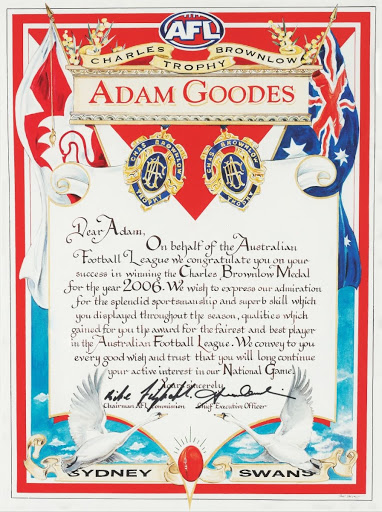 AFL
CHARLES BROWNLOW
TROPHY
ADAM GOODES
CHAS BROWNLOW
TROPHY
CHAS BROWNLOW
TROPHY
Dear Adam,
On behalf of the Australian
Football League we congratulate you on your
success in winning the Charles Brownlow Medal
for the year 2006. We wish to express our admiration
for the splendid sportsmanship and superb skill which
you displayed throughout the season, qualities which
gained for you the award for the fairest and best player
in the Australian Football League. We convey to you
every good wish and trust that you will long continue
your active interest in our National Game.
Yours sincerely
Chairman AFL Commission Chief Executive Officer
SYDNEY SWANS